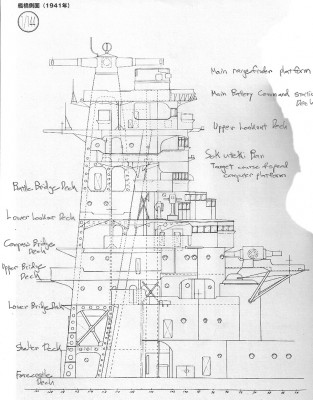 艦橋側面（1941年）
1/144
Main rangefinder platform
Main Battery Command station
Deck
Upper Lookout Deck
Target course & speed
computer platform
Battle Bridge Deck
Lower Lookout Deck
Compass Bridge
Deck
Upper Bridge
Deck
Lower Bridge Deck
Shelter Deck
Forecastle
Deck